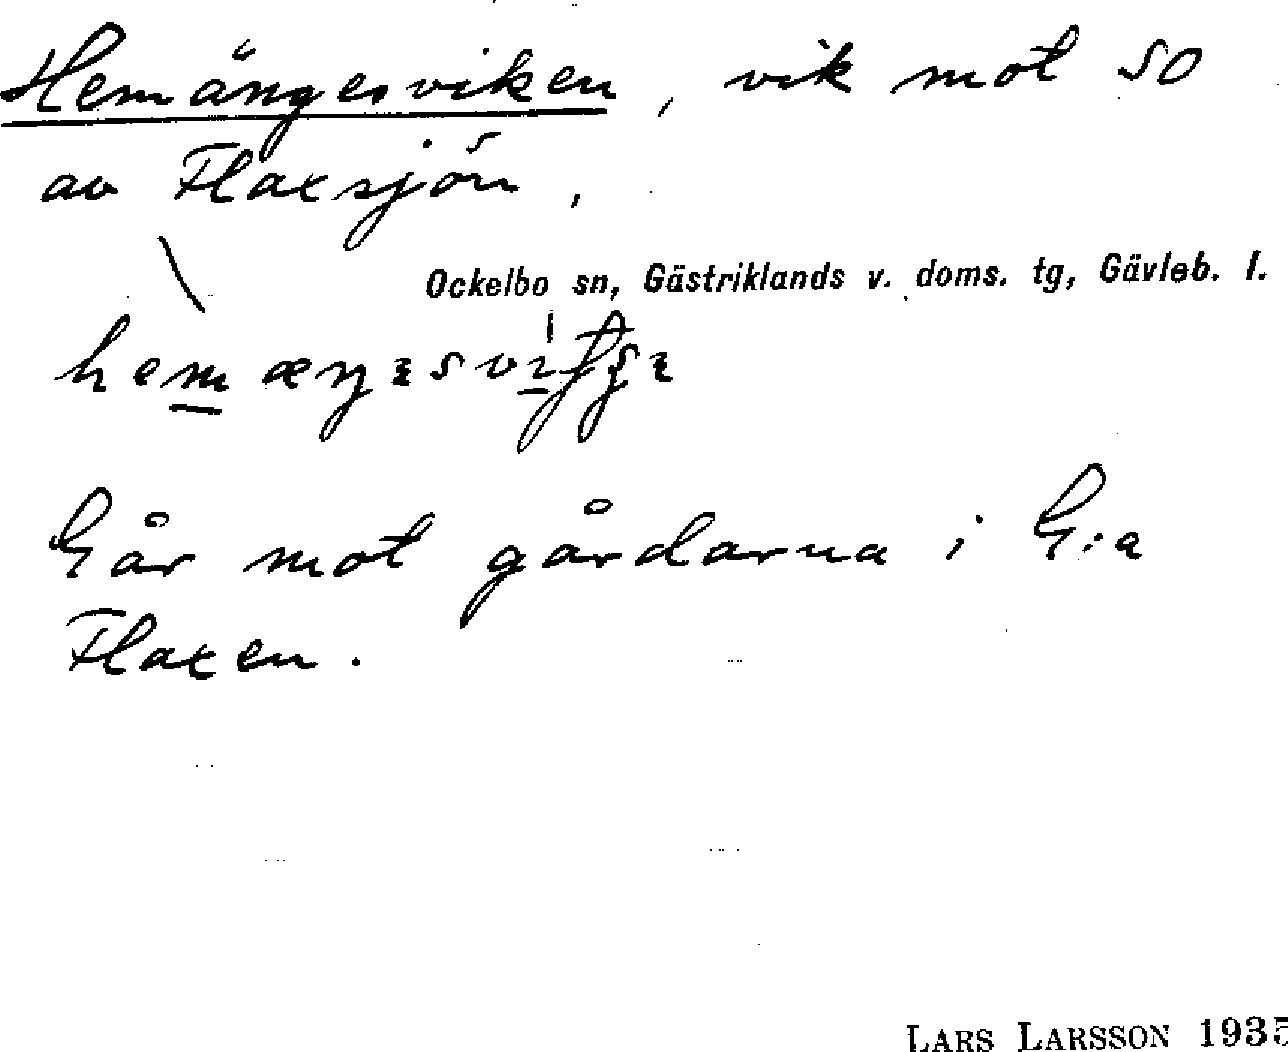 Hemängesviken, vik mot SO
av Flaxsjön,
Ockelbo sn, Gästriklands v. doms. tg, Gävleb. l.
Går mot gårdarna i G:a
Flaxen.
LARS LARSSON 1935